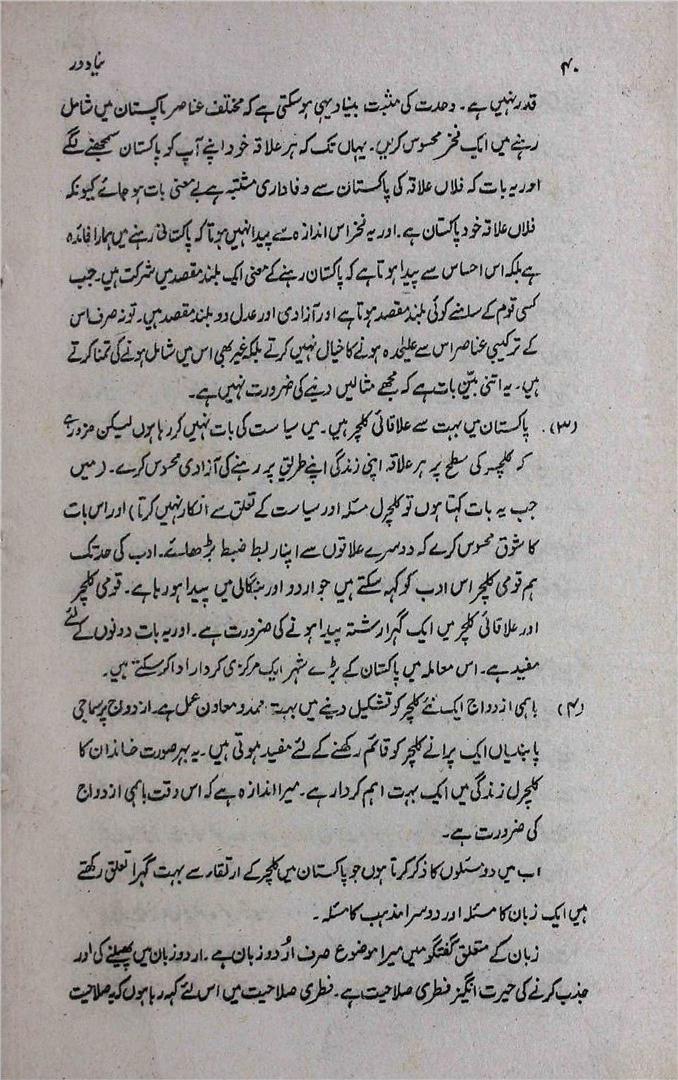 ۴۰ نیا دور
قدر نہیں ہے۔ وحدت کی مثبت بنیاد یہی ہوسکتی ہے کہ مختلف عناصر پاکستان میں شامل
رہنے میں ایک فخر محسوس کریں۔ یہاں تک کہ ہر علاقہ خود اپنے آپ کو پاکستان سمجھنے لگے
اور یہ بات کہ فلاں علاقہ کی پاکستان سے وفاداری مشتبہ ہے بے معنی بات ہو جائے کیونکہ
فلاں علاقہ خود پاکستان ہے۔ اور یہ فخر اس اندازہ سے پیدا نہیں ہوتا کہ پاکستانی رہنے میں ہمارا فائدہ
ہے بلکہ اس احساس سے پیدا ہوتا ہے کہ پاکستان رہنے کے معنی ایک بلند مقصد میں شرکت ہیں۔ جب
کسی قوم کے سامنے کوئی بلند مقصد ہوتا ہے اور آزادی اور عدل دو بلند مقصد ہیں۔ تو نہ صرف اس
کے ترکیبی عناصر اس سے علیٰحدہ ہونے کا خیال نہیں کرتے بلکہ غیر بھی اس میں شامل ہونے کی تمنا کرتے
ہیں۔ یہ اتنی بیّن بات ہے کہ مجھے مثالیں دینے کی ضرورت نہیں ہے۔
(۳)۔ پاکستان میں بہت سے علاقائی کلچر ہیں۔ میں سیاست کی بات نہیں کر رہا ہوں لیکن ضرور ہے
کہ کلچر کی سطح پر ہر علاقہ اپنی زندگی اپنے طریق پر رہنے کی آزادی محسوس کرے۔ (میں
جب یہ بات کہتا ہوں تو کلچرل مسئلہ اور سیاست کے تعلق سے انکار نہیں کرتا) اور اس بات
کا شوق محسوس کرے کہ دوسرے علاقوں سے اپنا ربط ضبط بڑھائے۔ ادب کی حد تک
ہم قومی کلچر اس ادب کو کہہ سکتے ہیں جو اردو اور بنگالی میں پیدا ہو رہا ہے۔ قومی کلچر
اور علاقائی کلچر میں ایک گہرا رشتہ پیدا ہونے کی ضرورت ہے۔ اور یہ بات دونوں کے لئے
مفید ہے۔ اس معاملہ میں پاکستان کے بڑے شہر ایک مرکزی کردار ادا کر سکتے ہیں۔
(۴) باہمی ازدواج ایک نئے کلچر کو تشکیل دینے میں بہت ممد و معاون عمل ہے۔ ازدواج پر سماجی
پابندیاں ایک پرانے کلچر کو قائم رکھنے کے لئے مفید ہوتی ہیں۔ یہ بہر صورت خاندان کا
کلچرل زندگی میں ایک بہت اہم کردار ہے۔ میرا اندازہ ہے کہ اس وقت باہمی ازدواج
کی ضرورت ہے۔
اب میں دو مسئلوں کا ذکر کرتا ہوں جو پاکستان میں کلچر کے ارتقار سے بہت گہرا تعلق رکھتے
ہیں ایک زبان کا مسئلہ اور دوسرا مذہب کا مسئلہ۔
زبان کے متعلق گفتگو میں میرا موضوع صرف اُردو زبان ہے۔ اردو زبان میں پھیلنے کی اور
جذب کرنے کی حیرت انگیز فطری صلاحیت ہے۔ فطری صلاحیت میں اس لئے کہہ رہا ہوں کہ یہ صلاحیت